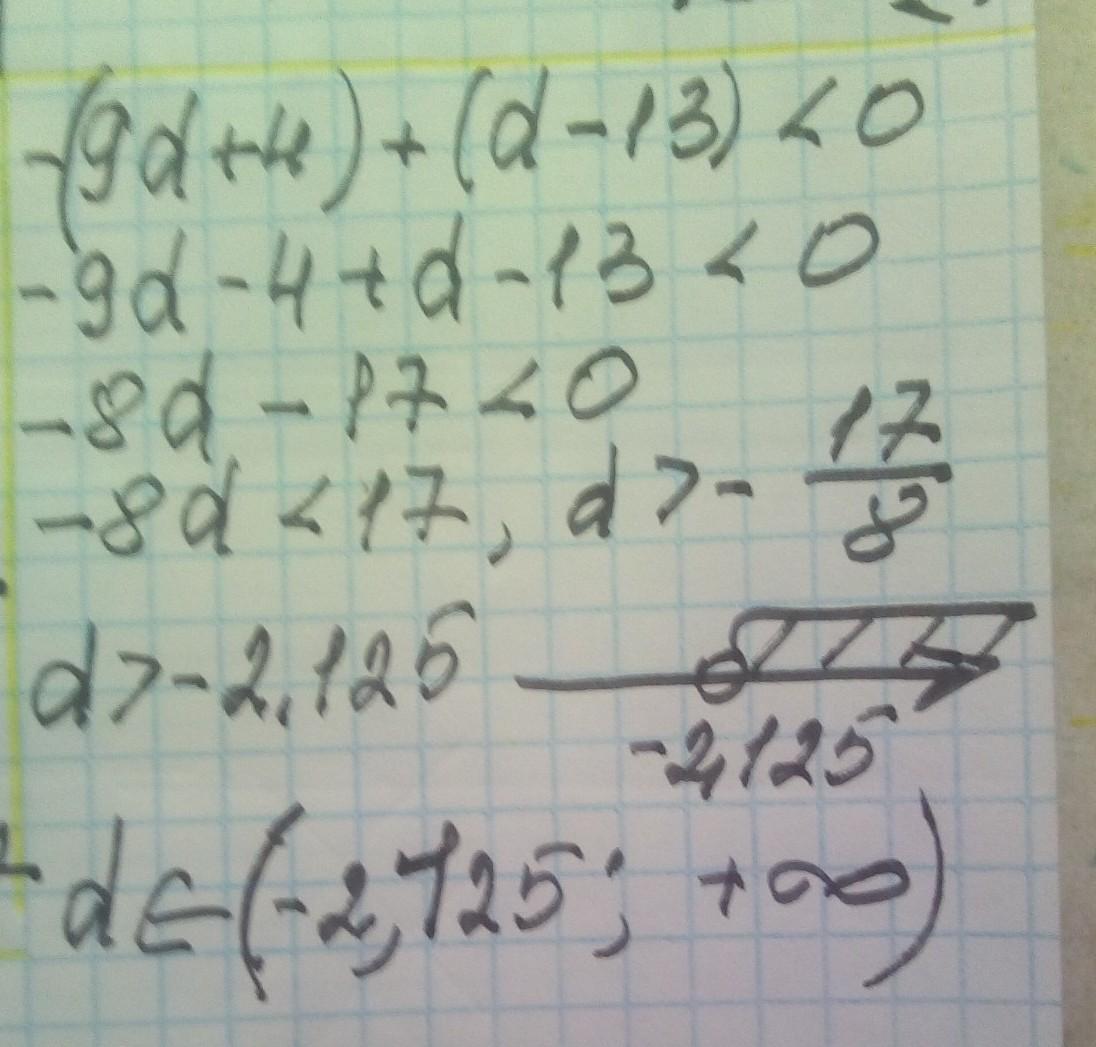 -(9d+4)+(d-13)<0
-9d-4+d-13<0
-8d-17<0
-8d<17, d>-17/8
d>-2,125
-2,125
d∈(-2,125; +∞)